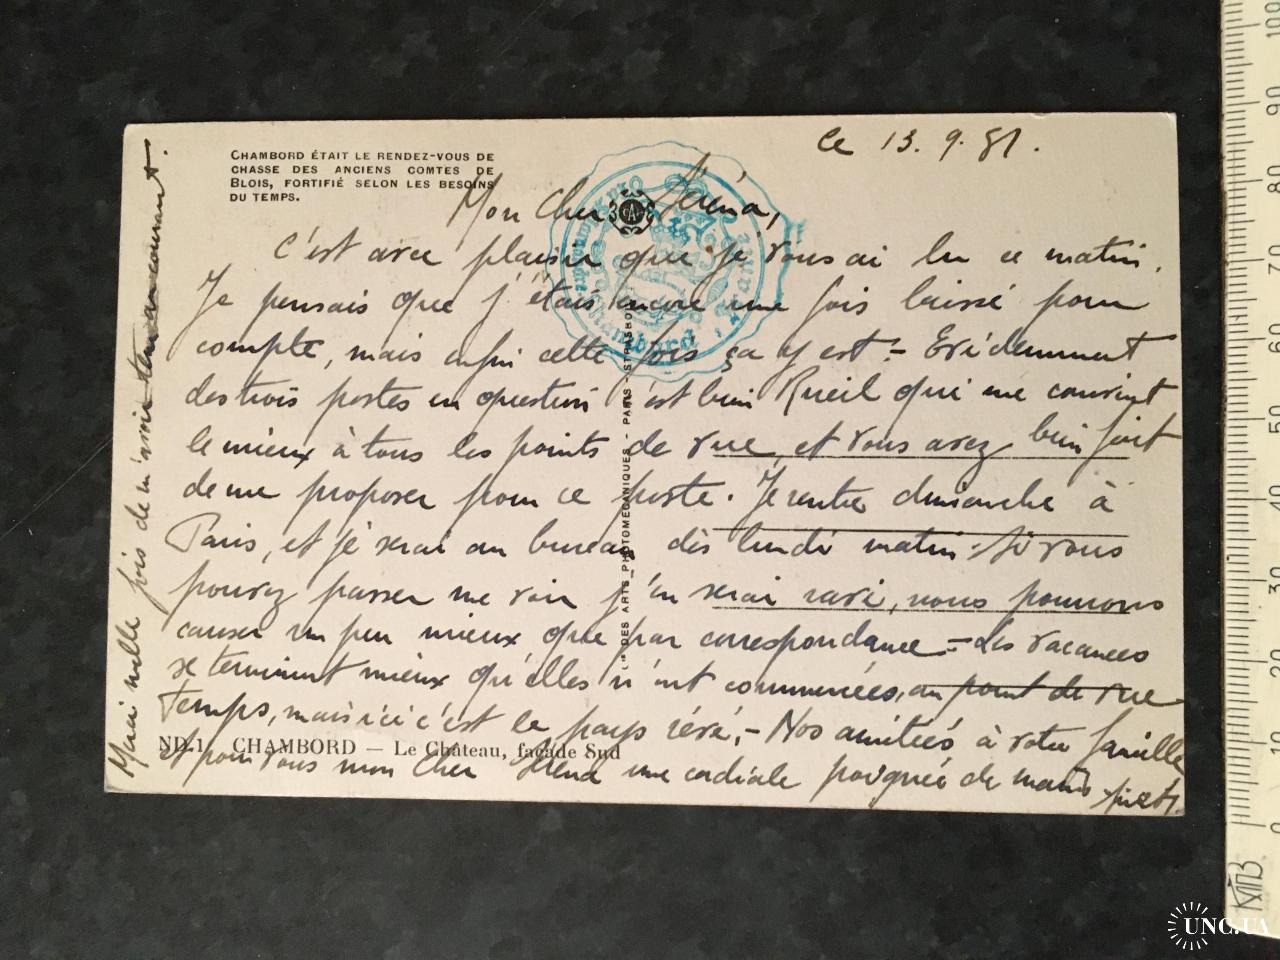 CHAMBORD ÉTAIT LE RENDEZ-VOUS DE
CHASSE DES ANCIENS COMTES DE
BLOIS, FORTIFIÉ SELON LES BESOINS
DU TEMPS.
Le 13.9.51.
Mon Cher
c'est avec plaisir que je vous ai lu ce matin.
Je pensais que j'étais encore une fois laissé pour
compte, mais enfin cette fois ça y est - Evidemment
des trois postes en question c'est bien Rueil qui me convient
le mieux à tous les points de vue et vous avez bien fait
de me proposer pour ce poste. Je rentre dimanche à
Paris, et je serai au bureau dès lundi matin - Si vous
pouvez passer me voir j'en serai ravi, nous pourrons
causer un peu mieux que par correspondance - Les vacances
se terminent mieux qu'elles n'ont commencées, au point de vue
Temps, mais ici c'est le pays rêvé, - Nos amitiés à votre famille
et pour vous mon Cher une cordiale poignée de mains
Merci mille fois de m'avoir tenu au courant.
ND. 1 CHAMBORD — Le Château, façade Sud
DES ARTS PHOTOMÉCANIQUES - PARIS - STRASBO
Chambord
100
90
80
70
60
50
40
30
20
10
0
UNC.UA